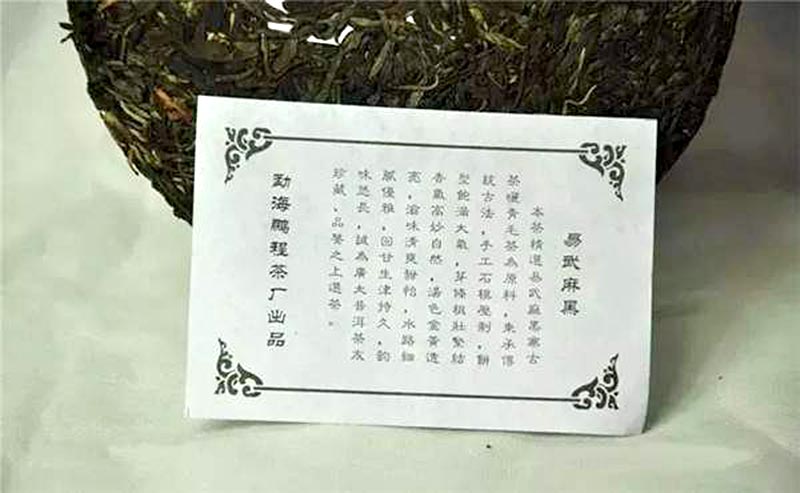 易武麻黑
本茶精選易武麻黑寨古
茶樹青毛茶為原料，秉承傳
統古法，手工石模壓制，餅
型飽滿大氣，芽條粗壯緊結
香氣高妙自然，湯色金黃透
亮，滋味清爽甜怡，水路細
膩優雅，回甘生津持久，韵
味悠長，誠為廣大普洱茶友
珍藏、品鑒之上選茶。
勐海鹏程茶厂出品